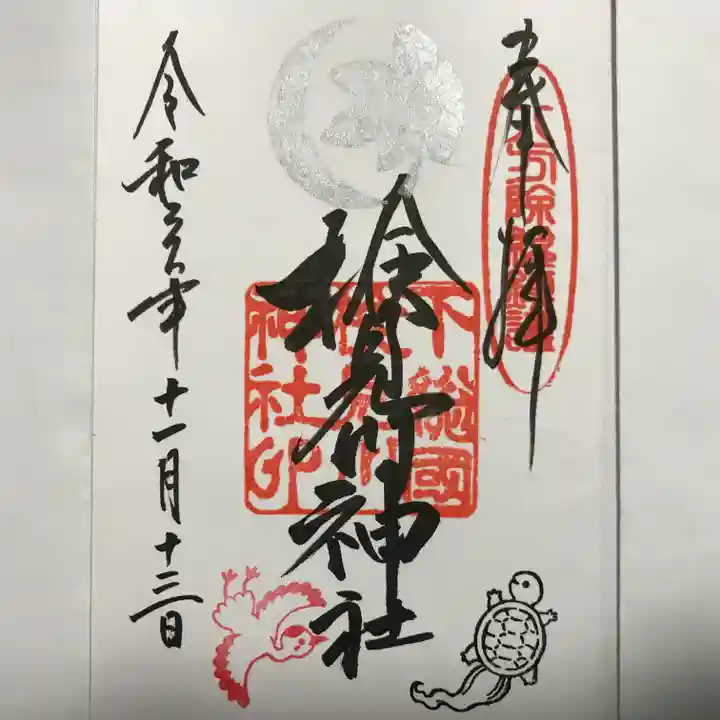 奉拝
八方除総鎮護
検見川神社
下総國
検見川
神社印
令和六年十一月十三日